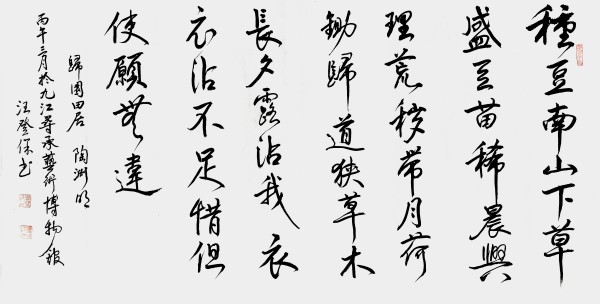 種豆南山下草
盛豆苗稀晨興
理荒穢帶月荷
鋤歸道狹草木
長夕露沾我衣
衣沾不足惜但
使願無違
歸園田居 陶淵明
丙午三月於九江尋承藝術博物館
汪登保书